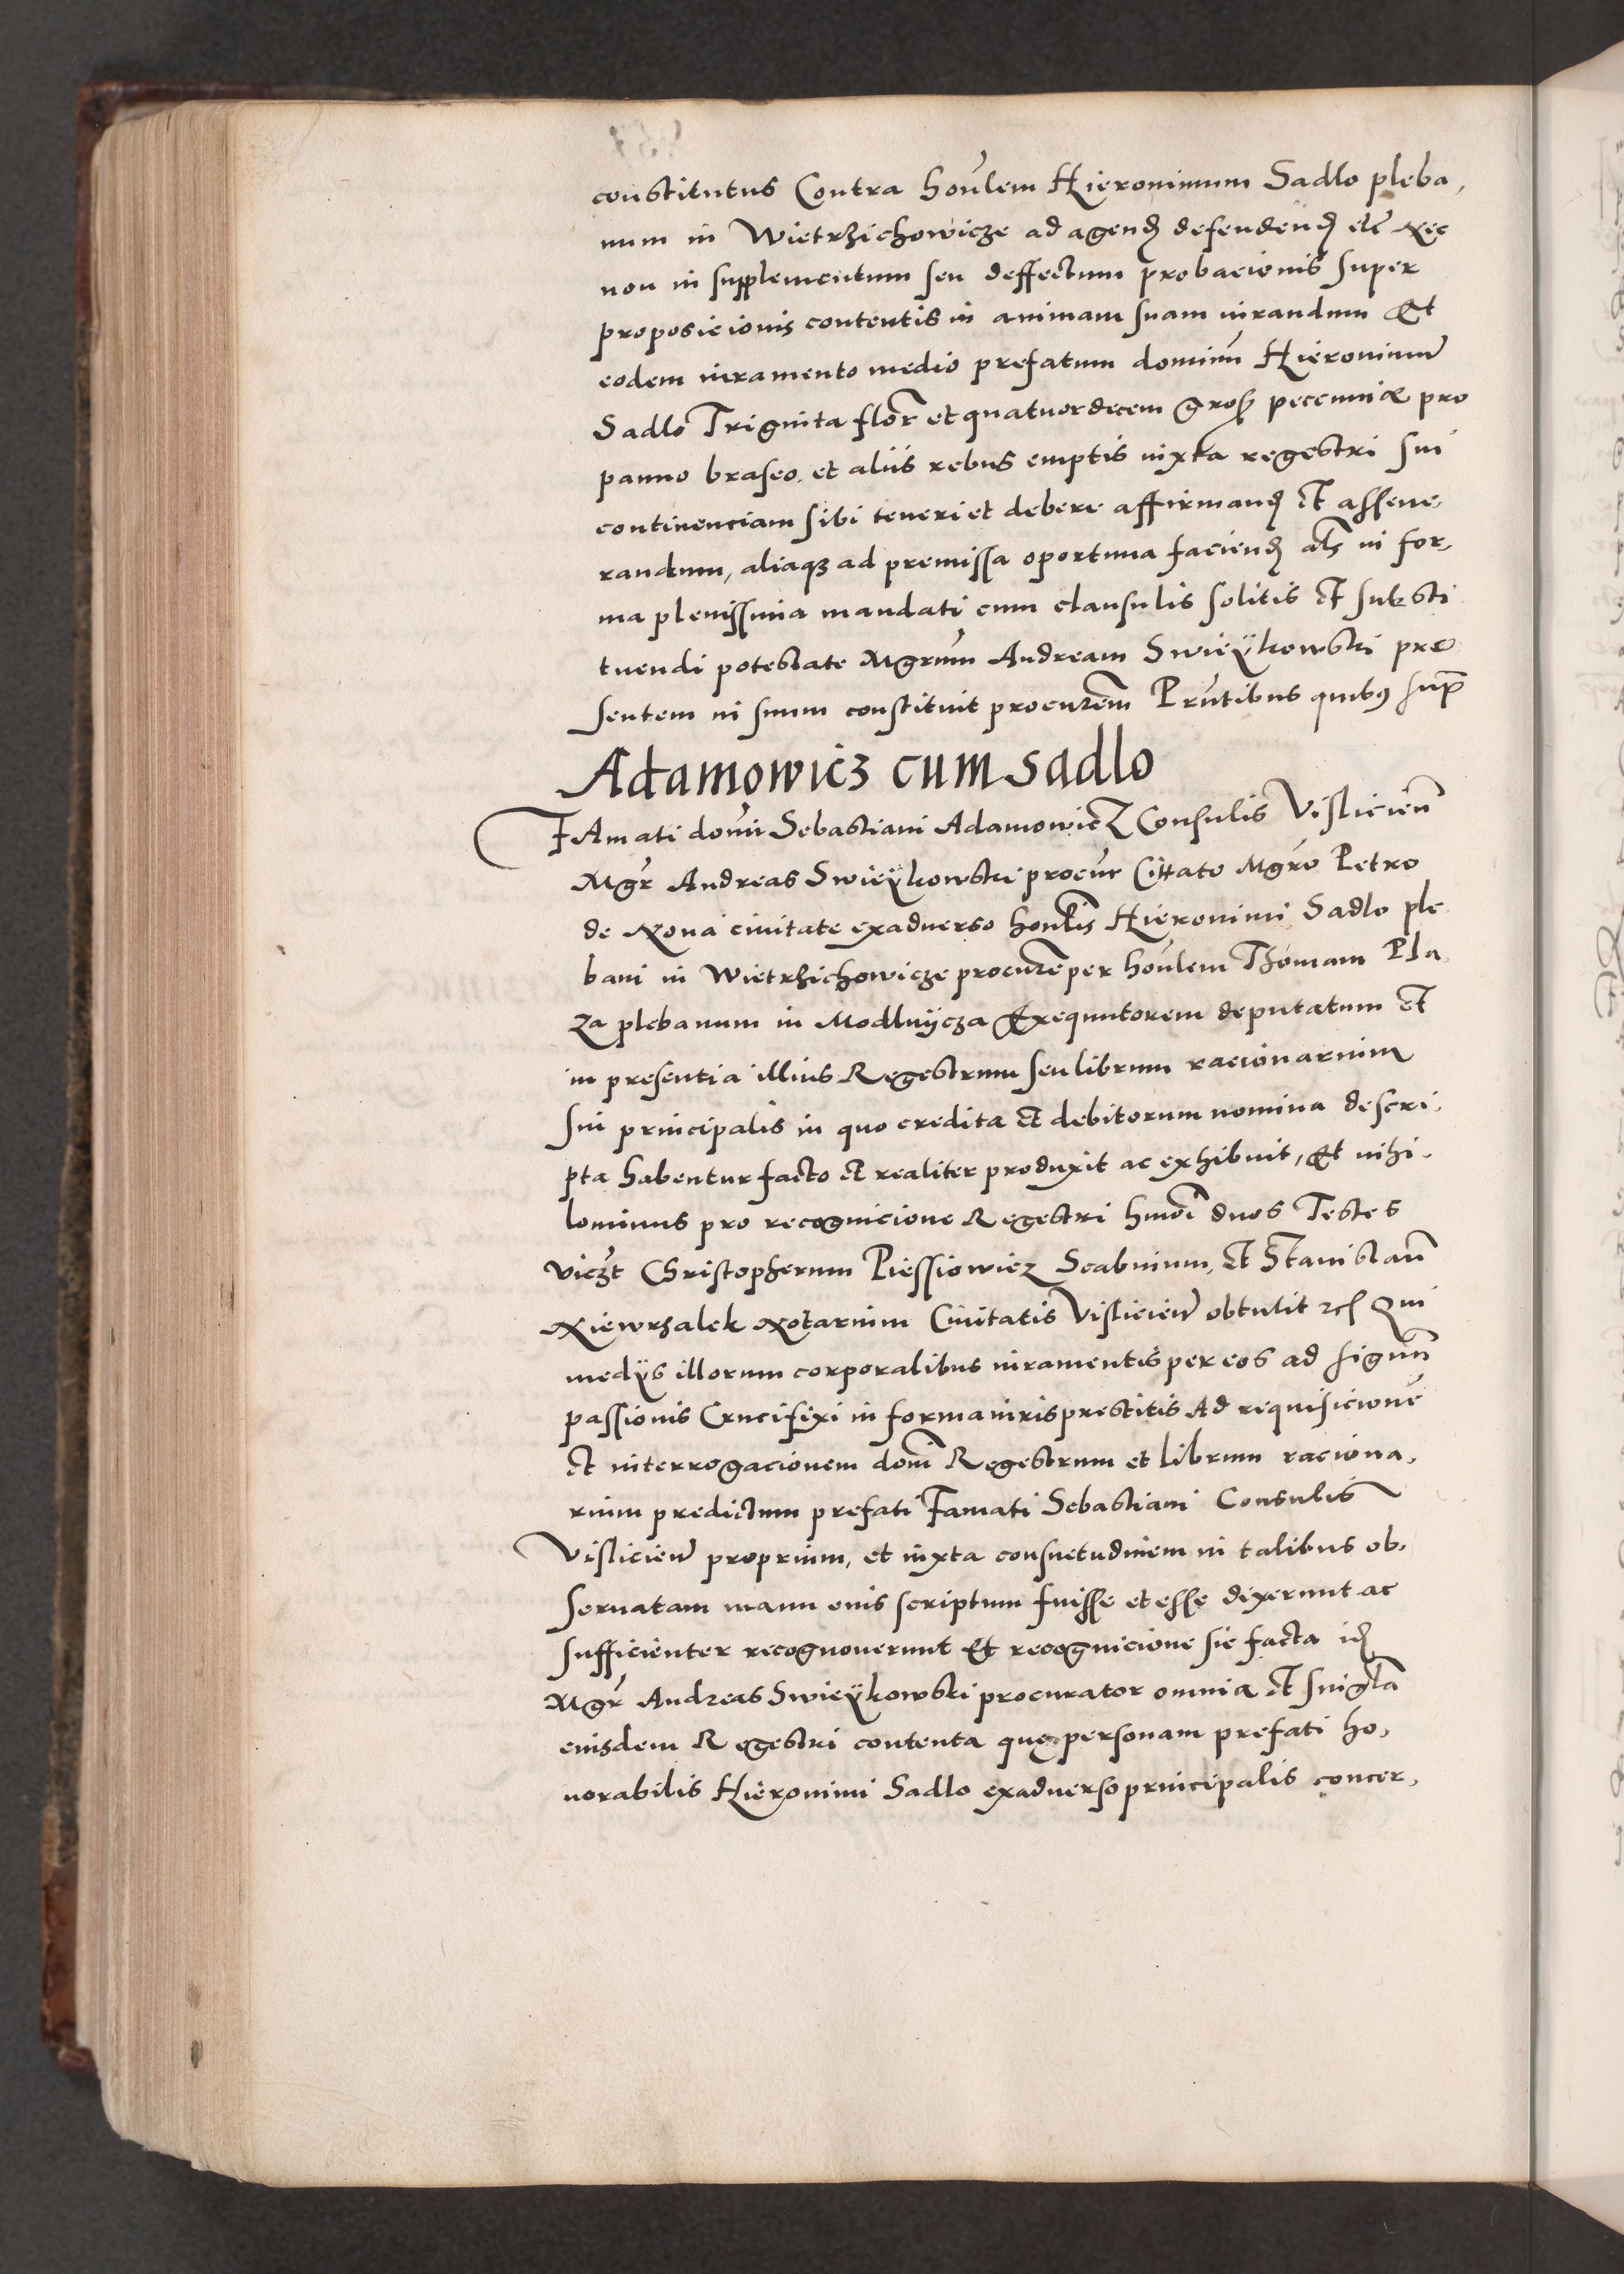 constitutus Contra honlem Hieronimum Sadlo pleba,
num in Wietrzichowicze ad agend defendend etc Nec
non in supplementum seu deffectum probacionis super
proposicionis contentis in animam suam iurandum Et
eodem iuramento medio prefatum dominum Hieronimum
Sadlo Triginta flor et quatuordecem gross pecuniæ pro
panno braseo, et aliis rebus emptis iuxta regestri sui
continenciam sibi teneri et debere affirmand et asseue,
randum, aliaq3 ad premissa oportuna faciend als in for,
ma plenissima mandati cum clausulis solitis et substi
tuendi potestate Mgrum Andream Swieÿkowski pre
sentem in suum constituit procurem Prntibus quibus supra
Adamowicz cum Sadlo
FAmati domini Sebastiani Adamowicz Consulis Vislicien
Mgr Andreas Swieÿkowski procur Cittato Mgro Petro
de Noua ciuitate exaduerso honlis Hieronimi Sadlo ple
bani in Wietrzichowicze procure per honlem Thomam Pla
za plebanum in Modlnÿcza Exequutorem deputatum et
in presentia illius Regestrum seu librum racionarium
sui principalis in quo credita et debitorum nomina descri,
pta habentur facto et realiter produxit ac exhibuit, Et nihi,
lominus pro recognicione Regestri hmoi duos Testes
viczt Christopherum Piessiowicz Scabinum, et Stanislaum
Niewrzalek Notarium Ciuitatis Vislicien obtulit Qui
medÿs illorum corporalibus iuramentis per eos ad signum
passionis Crucifixi in forma iuris prestitis Ad requisicione
et interrogacionem domi Regestrum et librum raciona,
rium predictum prefati Famati Sebastiani Consulis
Vislicien proprium, et iuxta consuetudinem in talibus ob,
seruatam manu eius scriptum fuisse et esse dixerunt ac
sufficienter recognouerunt Et recognicione sic facta id
Mgr Andreas Swieÿkowski procurator omnia et singla
eiusdem Regestri contenta que personam prefati ho,
norabilis Hieronimi Sadlo exaduerso principalis concer,